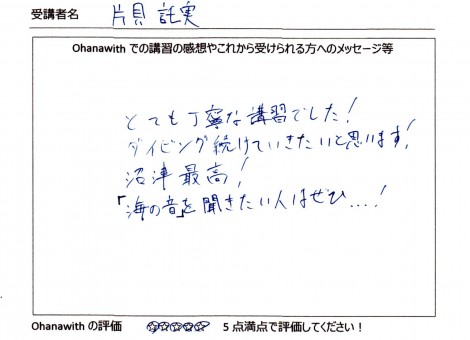 受講者名 片貝 託実
Ohanawith での講習の感想やこれから受けられる方へのメッセージ等
とても丁寧な講習でした!
ダイビング続けていきたいと思います!
沼津最高!
「海の音」を聞きたい人はぜひ...!
Ohanawith の評価 ☆☆☆☆☆ 5点満点で評価してください！